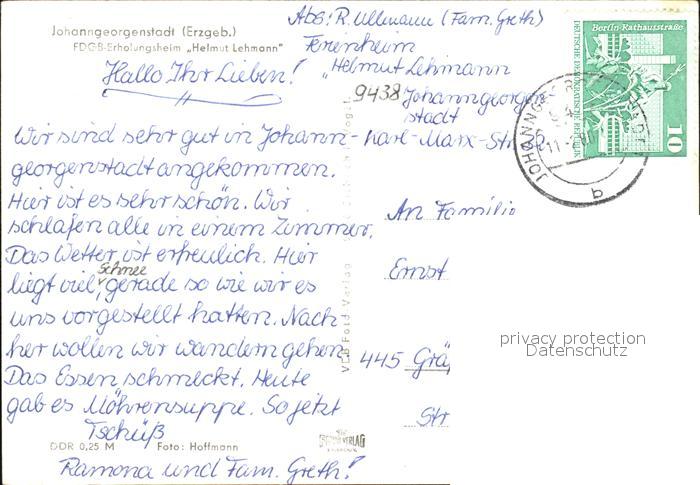 Johanngeorgenstadt (Erzgeb.)
FDGB-Erholungsheim „Helmut Lehmann"
Hallo Ihr Lieben!
Wir sind sehr gut in Johann-
georgenstadt angekommen.
Hier ist es sehr schön. Wir
schlafen alle in einem Zimmer.
Das Wetter ist erfreulich. Hier
liegt viel Schnee gerade so wie wir es
uns vorgestellt hatten. Nach
her wollen wir wandern gehen.
Das Essen schmeckt. Heute
gab es Möhrensuppe. So jetzt
Tschüß
Ramona und Fam. Greth!
DDR 0,25 M Foto: Hoffmann
VERLAG
Abs: R. Ullmann (Fam. Greth)
Ferienheim
„Helmut Lehmann
9438 Johanngeorgen-
stadt
Karl-Marx-Str
An Familie
Ernst
445 Grä
Str
Berlin-Rathausstraße
DEUTSCHE DEMOKRATISCHE REPUBLIK
10
b
privacy protection
Datenschutz